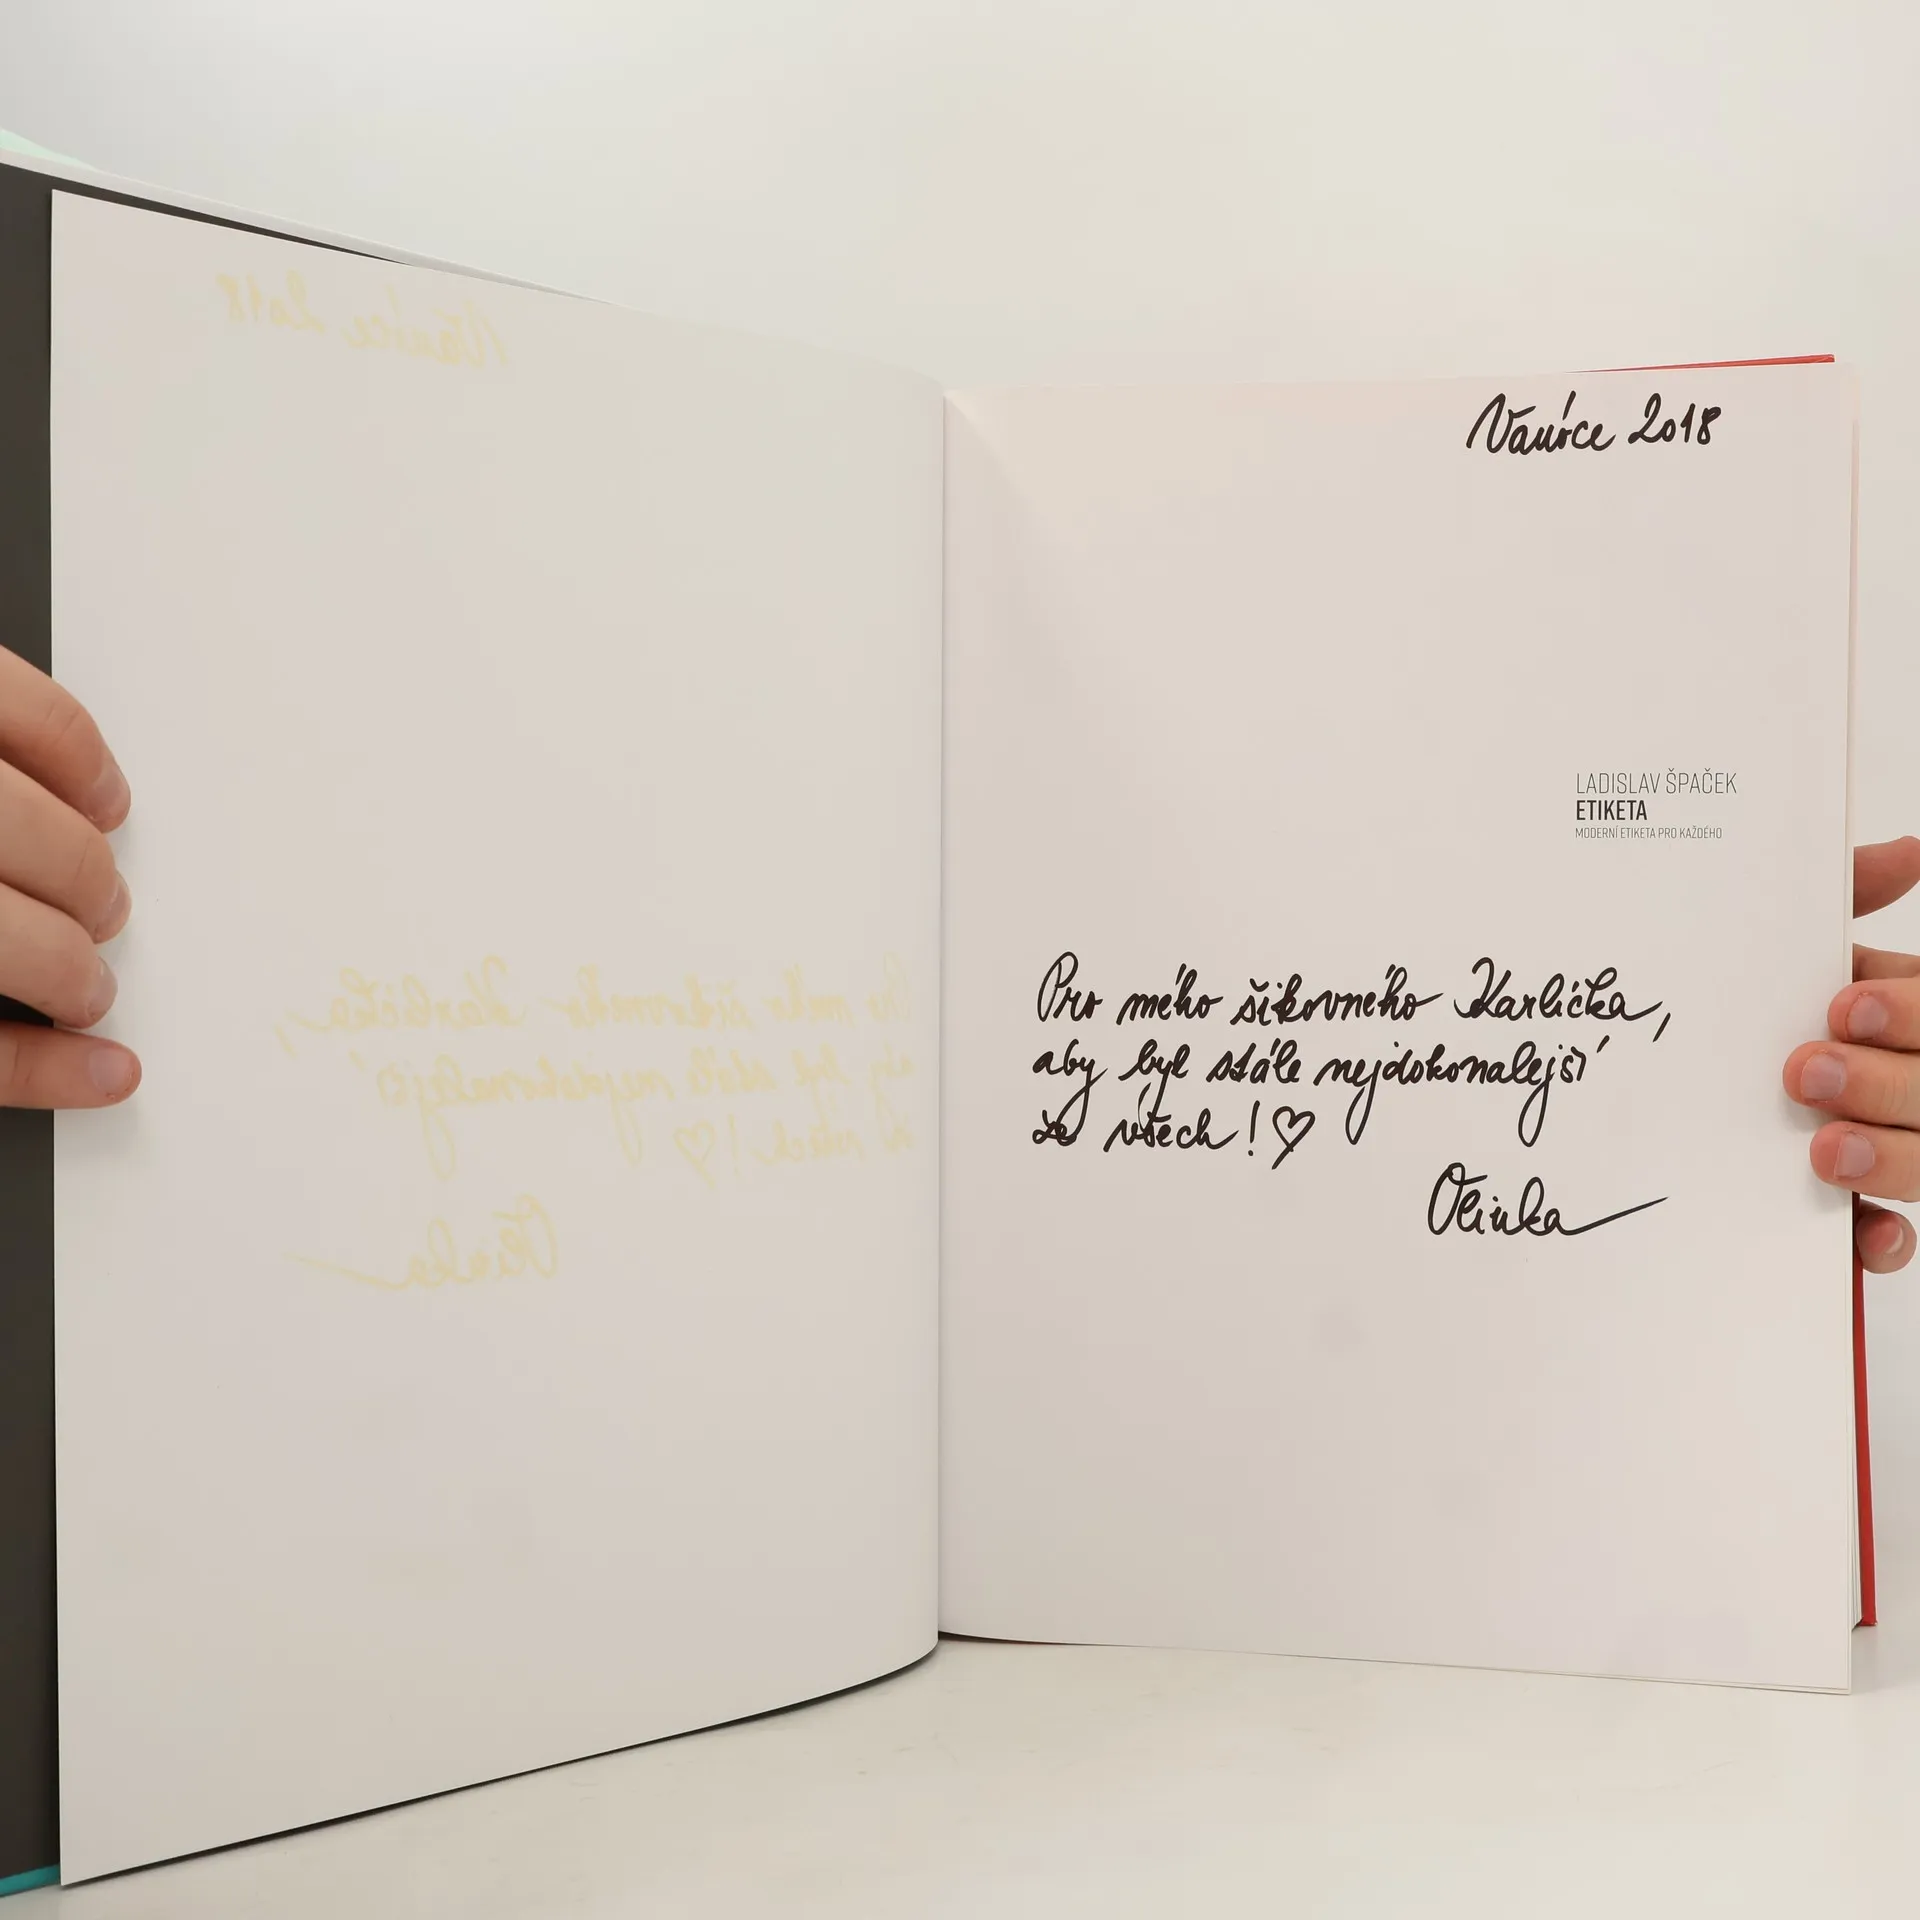 Vánoce 2018
LADISLAV ŠPAČEK
ETIKETA
MODERNÍ ETIKETA PRO KAŽDÉHO
Pro mého šikovného Karlíčka,
aby byl stále nejdokonalejší
ze všech! ♡
Olinka